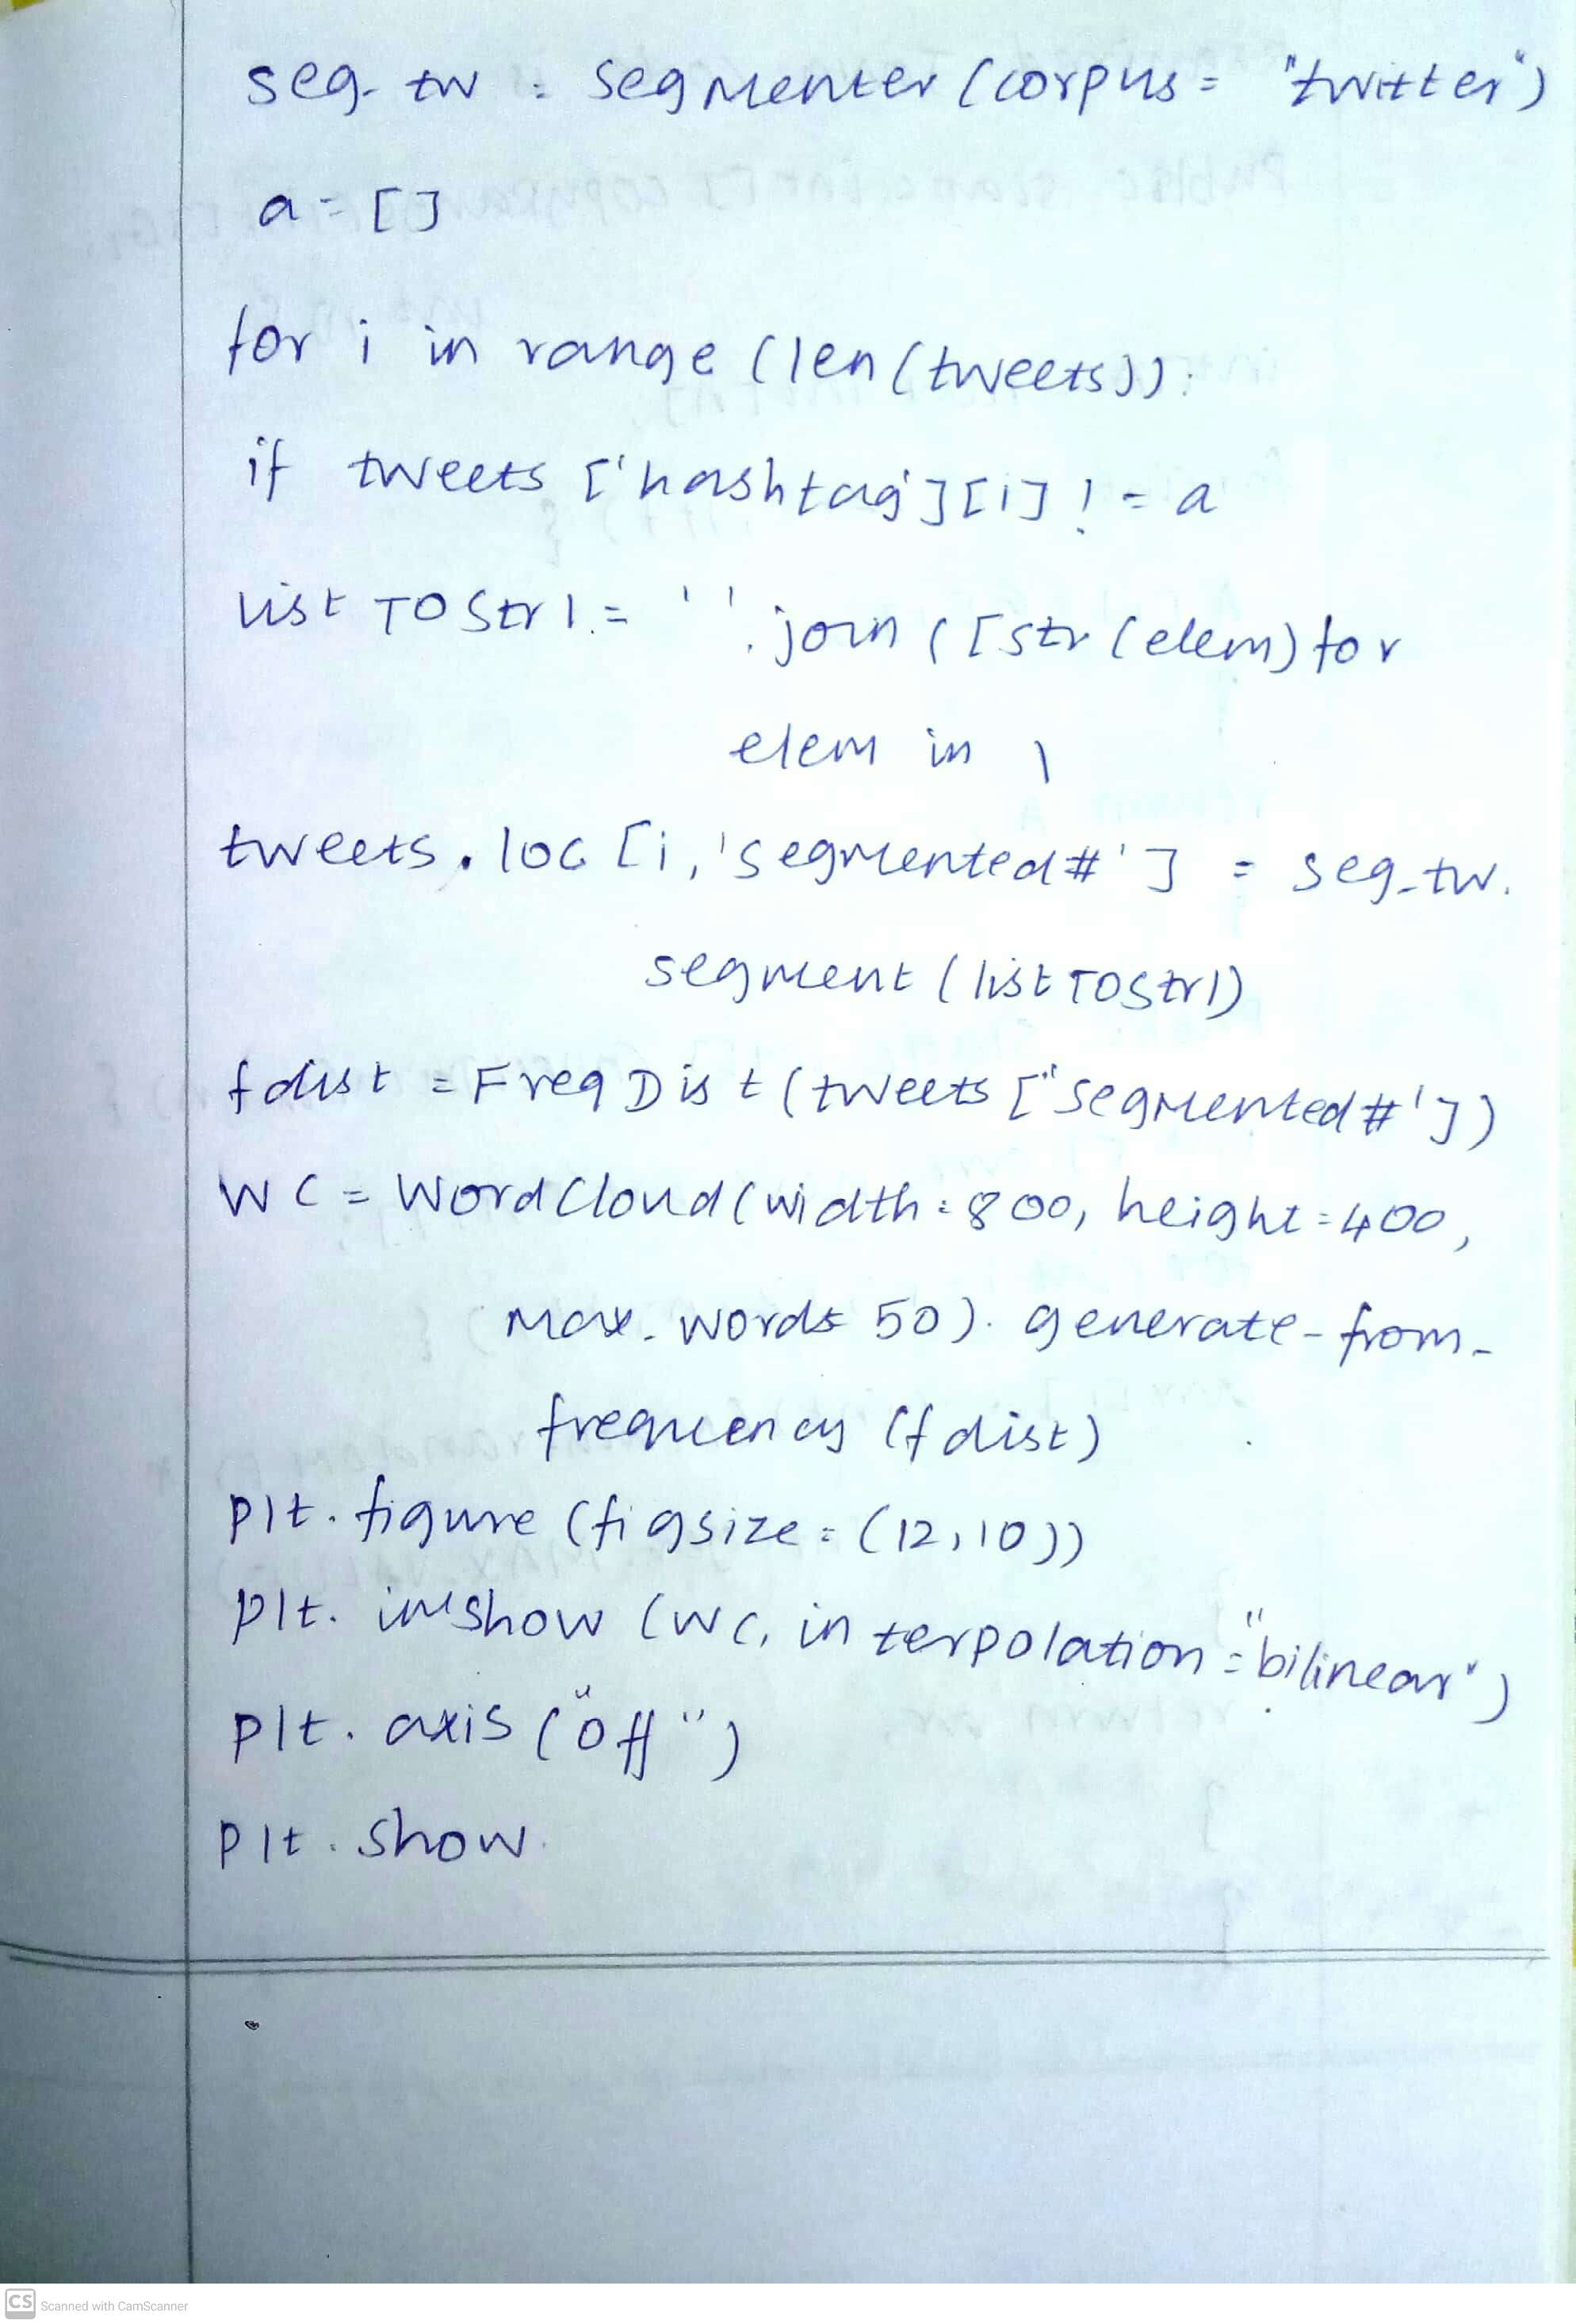 seg_tw = segmenter (corpus = "twitter")
a = []
for i in range (len (tweets)):
if tweets ['hashtag'][i] != a
list TO Str1 = ' '. join ([str (elem) for
elem in \
tweets. loc [i, 'segmented#'] = seg_tw.
segment (list TO Str1)
fdist = Freq Dist (tweets ["segmented#'])
WC = WordCloud (width = 800, height = 400,
max_words 50). generate_from_
frequency (fdist)
plt. figure (figsize = (12,10))
plt. imshow (wc, interpolation = "bilinear")
plt. axis ("off")
plt. show
CS Scanned with CamScanner